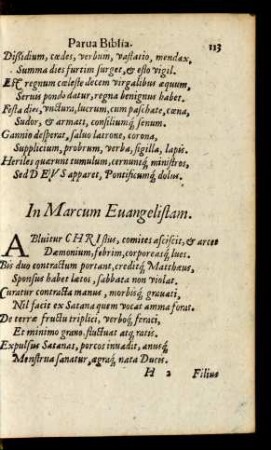 Parua Biblia. 113
Dissidium, cædes, verbum, vastatio, mendax,
Summa dies furtim surget, & esto vigil.
Est regnum cæleste decem virgalibus æquum,
Seruus pondo datur, regna benignus habet.
Festa dies, vnctura, lucrum, cum paschate, cæna,
Sudor, & armati, consiliumq́; senum.
Gannio desperat, saluo latrone, corona,
Supplicium, probrum, verba, sigilla, lapis.
Heriles quærunt tumulum, cernuntq́; ministros,
Sed DEVS apparet, Pontificumq́; dolus.
In Marcum Euangelistam.
ABluitur CHRIstus, comites asciscit, & arcet
Dæmonium, febrim, corporeasq́; lues.
Bis duo contractum portant, creditq́; Matthæus,
Sponsus habet latos, sabbata non violat.
Curatur contracta manus, morbisq́; grauati,
Nil facit ex Satana quem vocat amma forat.
De terræ fructu triplici, verboq́; feraci,
Et minimo grano, fluctuat atq́; ratis.
Expulsus Satanas, porcos inuadit, anusq́;
Menstrua sanatur, ægraq́; nata Ducis.
H 2 Filius